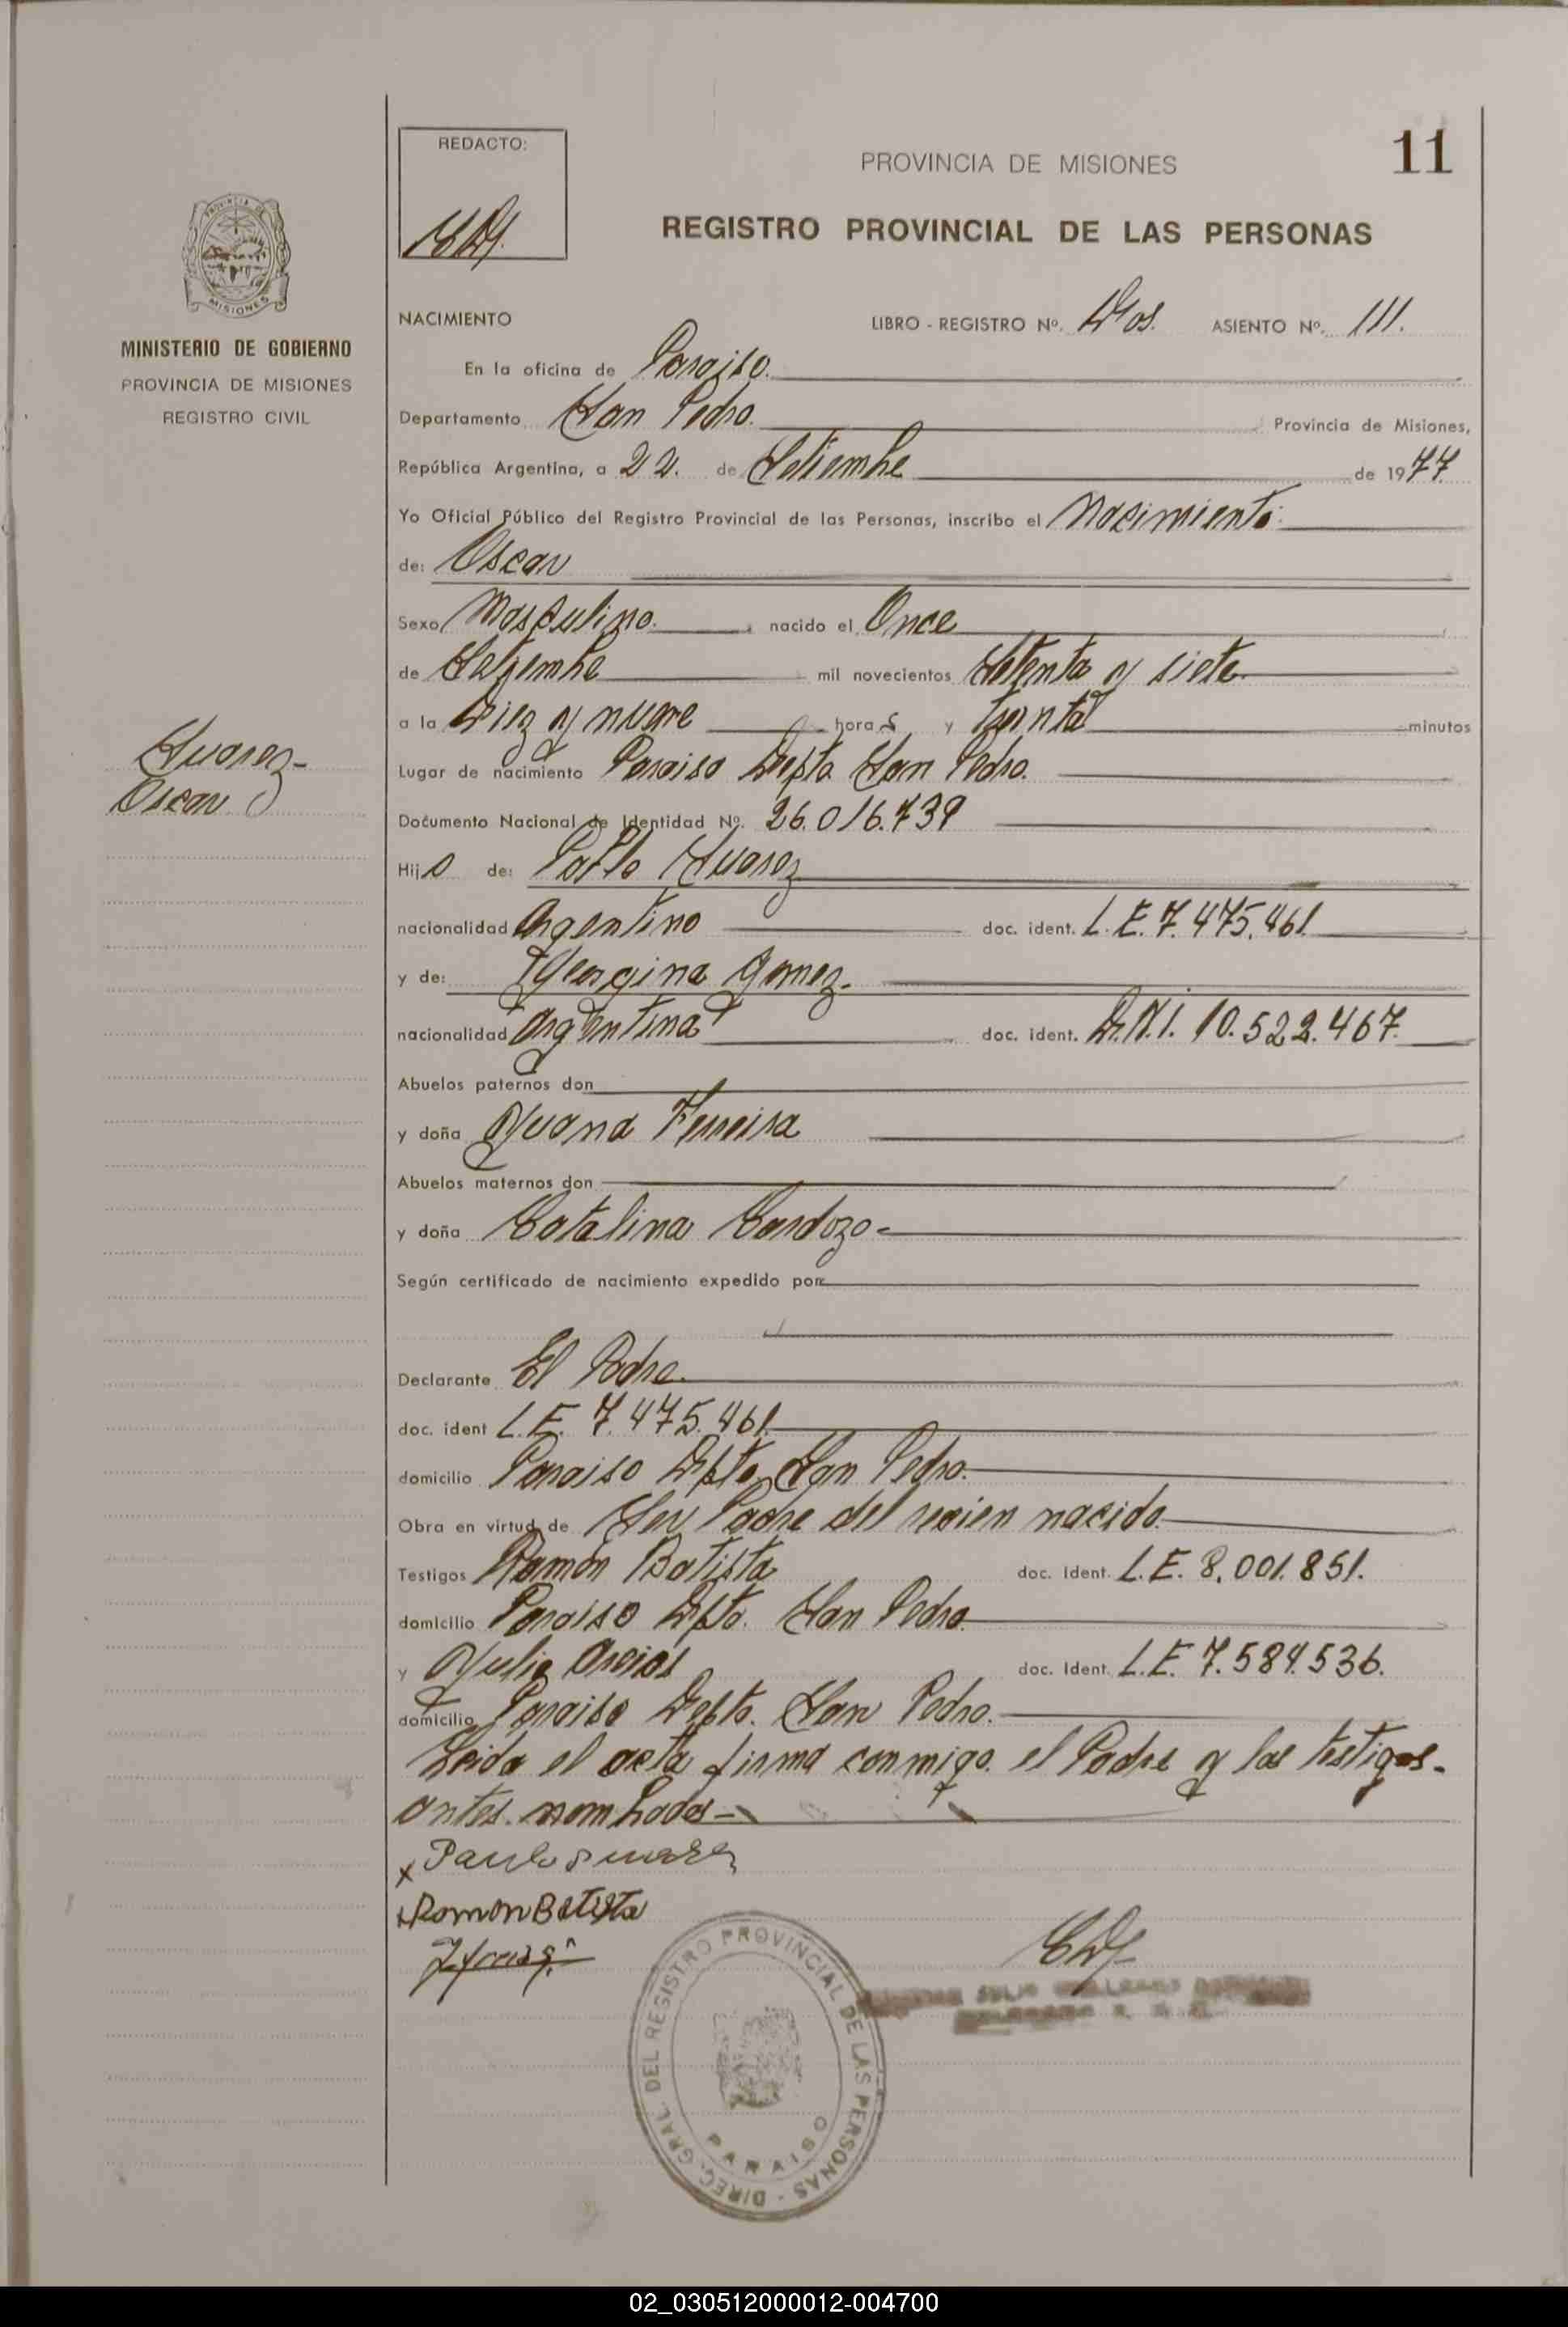 REDACTO:
PROVINCIA DE MISIONES
11
REGISTRO PROVINCIAL DE LAS PERSONAS
PROVINCIA DE
MISIONES
MINISTERIO DE GOBIERNO
PROVINCIA DE MISIONES
REGISTRO CIVIL
NACIMIENTO
LIBRO - REGISTRO Nº. Dos. ASIENTO Nº. 111.
En la oficina de Paraiso.
Departamento San Pedro. Provincia de Misiones,
República Argentina, a 22. de Setiembre de 1977
Yo Oficial Público del Registro Provincial de las Personas, inscribo el Nacimiento
de: Oscar
Sexo Masculino. nacido el Once
de Setiembre mil novecientos Setenta y siete
a la Diez y nueve horas y treinta minutos
Suarez-
Oscar
Lugar de nacimiento Paraiso Depto San Pedro.
Documento Nacional de Identidad Nº. 26.016.739
Hijo de: Pablo Suarez
nacionalidad Argentino doc. ident. L.E. 7.475.461
y de: Georgina Gomez.
nacionalidad Argentina doc. ident. D.N.I. 10.522.467.
Abuelos paternos don
y doña Juana Ferreira
Abuelos maternos don
y doña Catalina Cardozo-
Según certificado de nacimiento expedido por:
Declarante El Padre.
doc. ident L.E. 7.475.461.
domicilio Paraiso Dpto. San Pedro.
Obra en virtud de Ser Padre del recien nacido.
Testigos Ramón Batista doc. ident. L.E. 8.001.851.
domicilio Paraiso Dpto. San Pedro.
y Julio doc. Ident. L.E. 7.584.536.
domicilio Paraiso Depto. San Pedro.
Leida el acta firma conmigo el Padre y los testigos-
antes nombrados-
x Paulo Suarez
Ramon Batista
DIREC. GRAL. DEL REGISTRO PROVINCIAL DE LAS PERSONAS -
PARAISO
JULIO
02_030512000012-004700